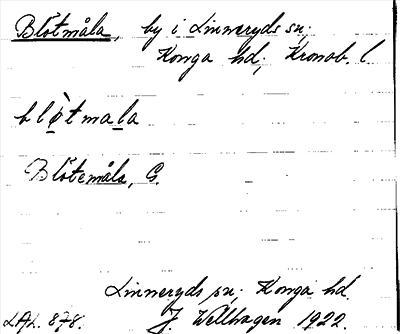 Blötmåla, by i Linneryds sn;
Konga hd; Kronob. l.
blø̀tmala
Blötemåla, G.
Linneryds sn; Konga hd.
LAL. 878. J. Wellhagen 1922.